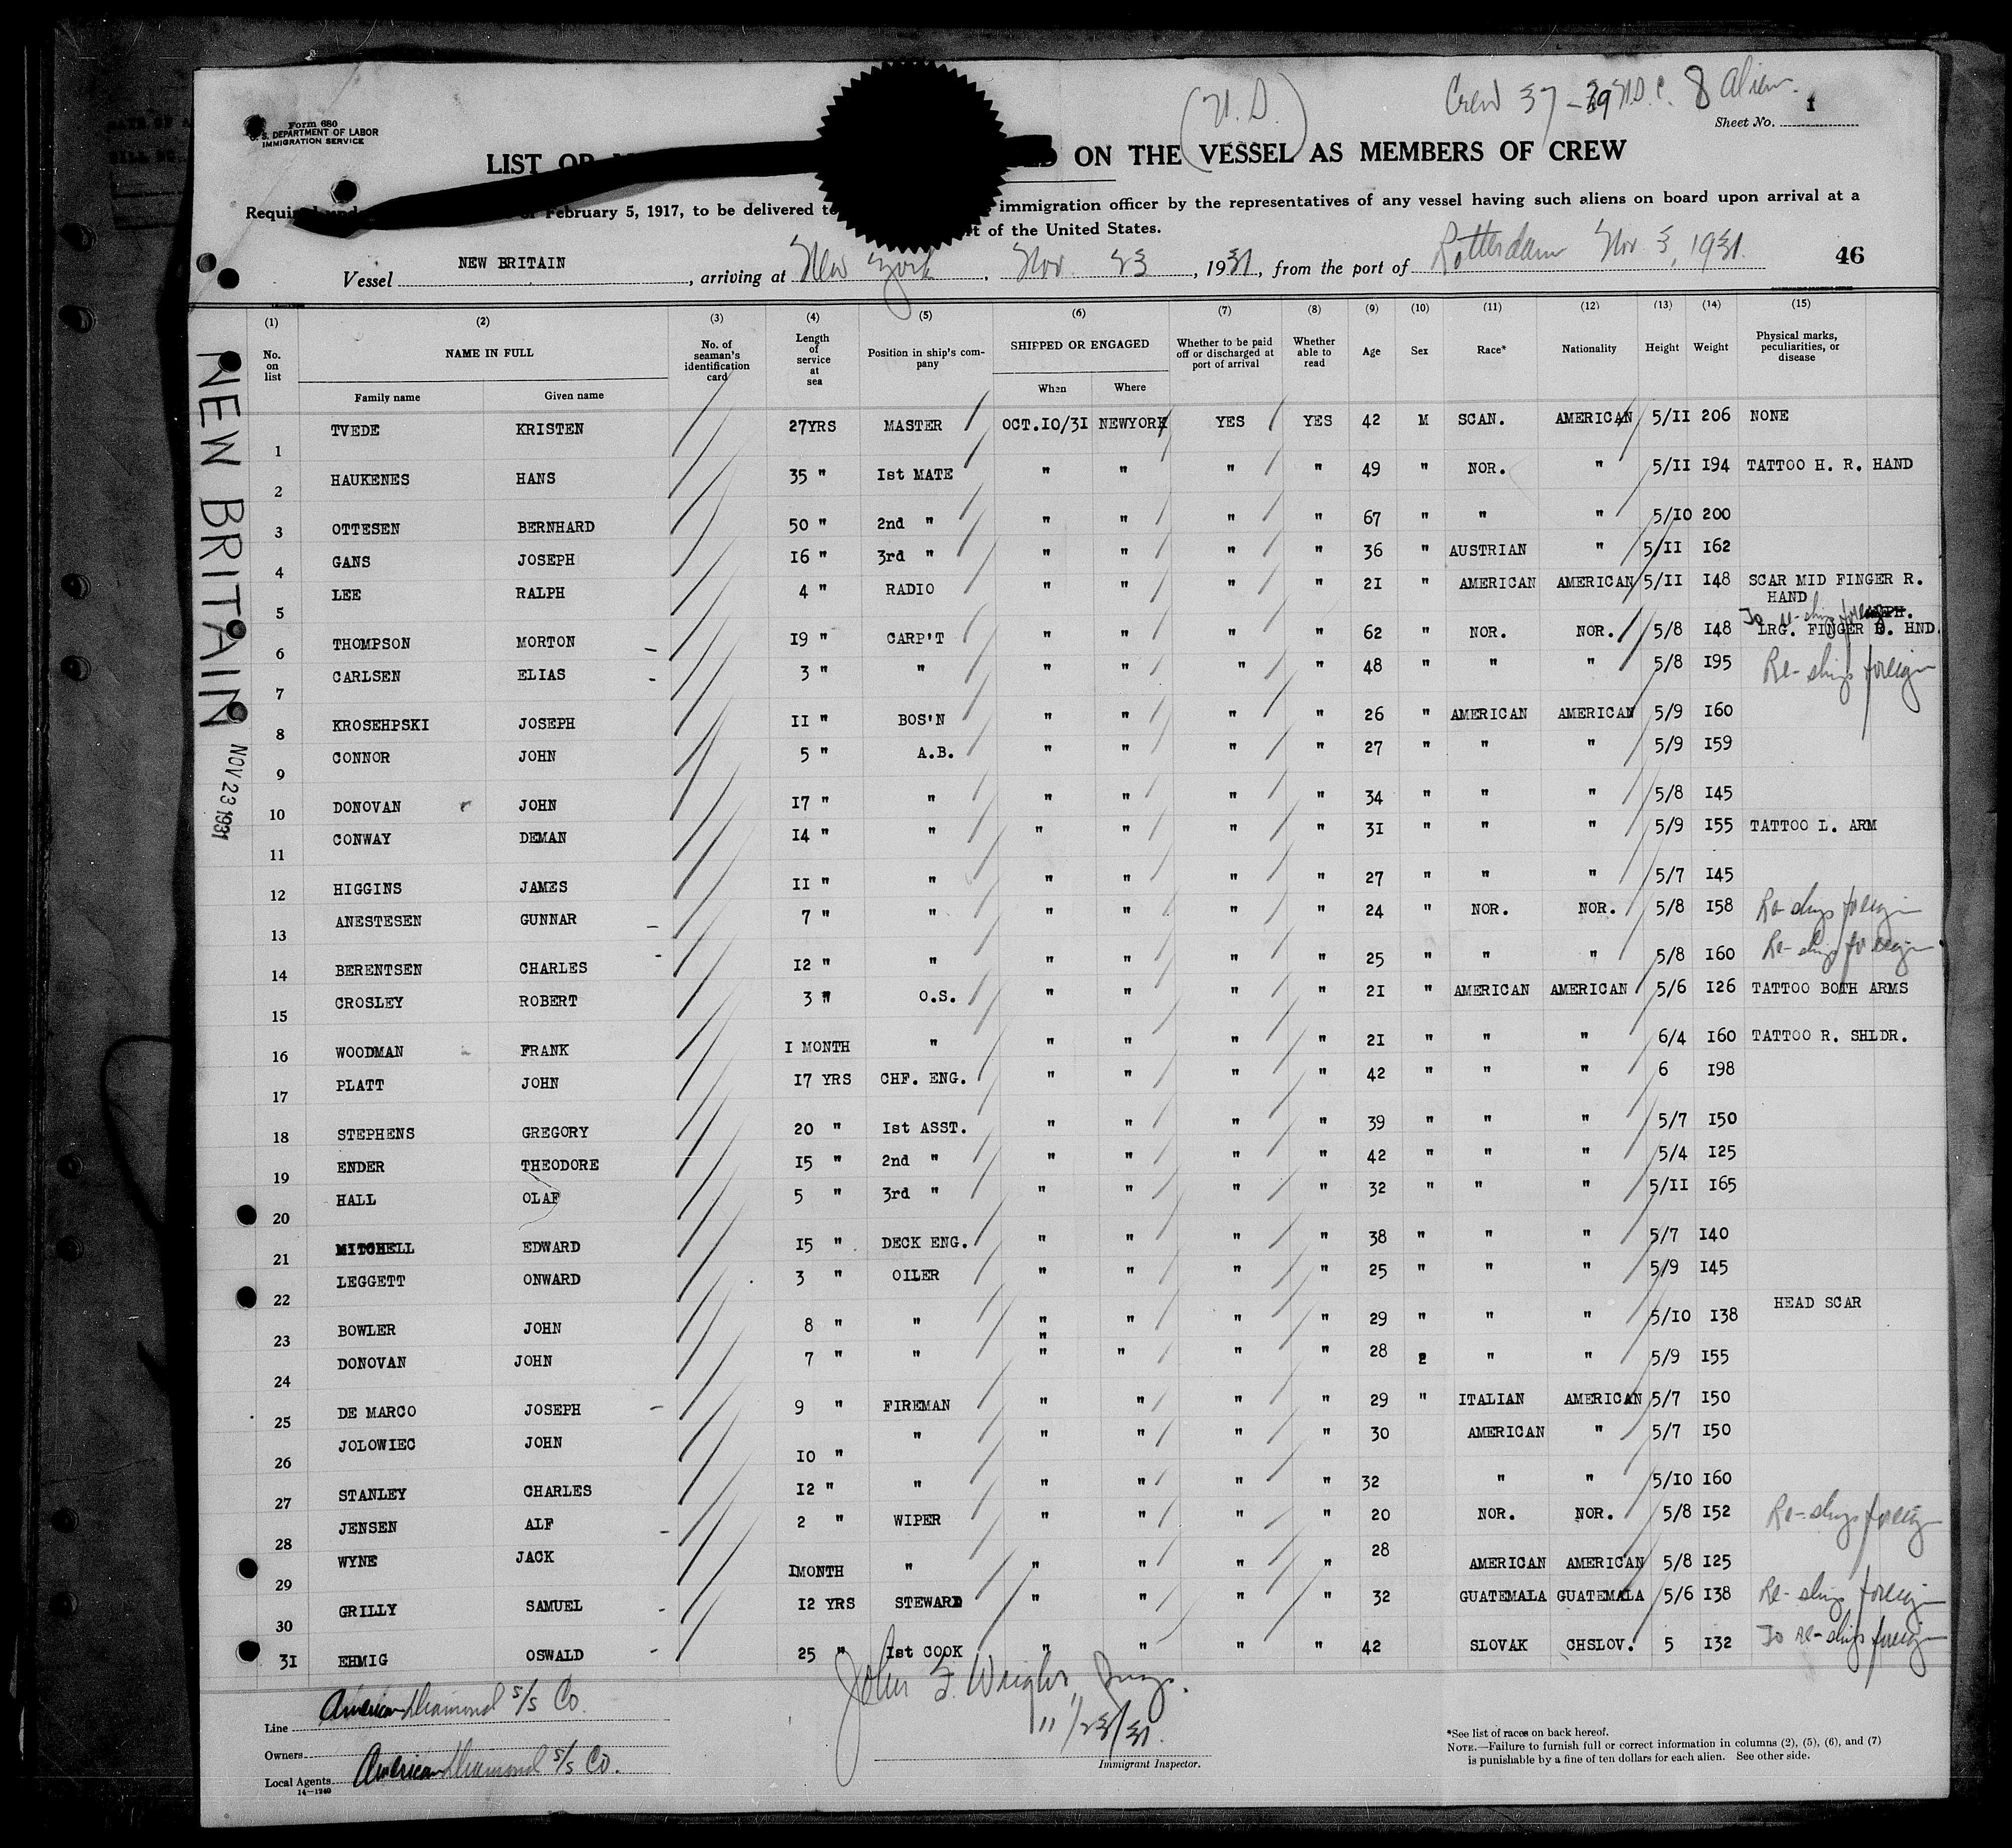 Form 680
U. S. DEPARTMENT OF LABOR
IMMIGRATION SERVICE
(U. S.) Crew 37 - 29 U.S.C. 8 Aliens
Sheet No. 1
LIST OR ON THE VESSEL AS MEMBERS OF CREW
February 5, 1917, to be delivered to immigration officer by the representatives of any vessel having such aliens on board upon arrival at a
of the United States.
Vessel NEW BRITAIN, arriving at New York, Nov. 23, 1931, from the port of Rotterdam Nov 3, 1931. 46
NEW BRITAIN
NOV 23 1931
(1) (2) (3) (4) (5) (6) (7) (8) (9) (10) (11) (12) (13) (14) (15)
No. on list | NAME IN FULL | No. of seaman's identification card | Length of service at sea | Position in ship's company | SHIPPED OR ENGAGED | Whether to be paid off or discharged at port of arrival | Whether able to read | Age | Sex | Race* | Nationality | Height | Weight | Physical marks, peculiarities, or disease
Family name | Given name | When | Where
1 TVEDE KRISTEN 27YRS MASTER OCT.10/31 NEWYORK YES YES 42 M SCAN. AMERICAN 5/11 206 NONE
2 HAUKENES HANS 35 " 1st MATE " " " " 49 " NOR. " 5/11 194 TATTOO H. R. HAND
3 OTTESEN BERNHARD 50 " 2nd " " " " " 67 " " " 5/10 200
4 GANS JOSEPH 16 " 3rd " " " " " 36 " AUSTRIAN " 5/11 162
5 LEE RALPH 4 " RADIO " " " " 21 " AMERICAN AMERICAN 5/11 148 SCAR MID FINGER R. HAND
6 THOMPSON MORTON 19 " CARP'T " " " " 62 " NOR. NOR. 5/8 148 To re-ship foreign LRG. FINGER HND.
7 CARLSEN ELIAS 3 " " " " " " 48 " " " 5/8 195 Re-ships foreign
8 KROSEHPSKI JOSEPH 11 " BOS'N " " " " 26 " AMERICAN AMERICAN 5/9 160
9 CONNOR JOHN 5 " A.B. " " " " 27 " " " 5/9 159
10 DONOVAN JOHN 17 " " " " " " 34 " " " 5/8 145
11 CONWAY DEMAN 14 " " " " " " 31 " " " 5/9 155 TATTOO L. ARM
12 HIGGINS JAMES 11 " " " " " " 27 " " " 5/7 145
13 ANESTESEN GUNNAR 7 " " " " " " 24 " NOR. NOR. 5/8 158 Re-ships foreign
14 BERENTSEN CHARLES 12 " " " " " " 25 " " " 5/8 160 Re-ships foreign
15 CROSLEY ROBERT 3 " O.S. " " " " 21 " AMERICAN AMERICAN 5/6 126 TATTOO BOTH ARMS
16 WOODMAN FRANK 1 MONTH " " " " " 21 " " " 6/4 160 TATTOO R. SHLDR.
17 PLATT JOHN 17 YRS CHF. ENG. " " " " 42 " " " 6 198
18 STEPHENS GREGORY 20 " 1st ASST. " " " " 39 " " " 5/7 150
19 ENDER THEODORE 15 " 2nd " " " " " 42 " " " 5/4 125
20 HALL OLAF 5 " 3rd " " " " " 32 " " " 5/11 165
21 MITCHELL EDWARD 15 " DECK ENG. " " " " 38 " " " 5/7 140
22 LEGGETT ONWARD 3 " OILER " " " " 25 " " " 5/9 145
23 BOWLER JOHN 8 " " " " " " 29 " " " 5/10 138 HEAD SCAR
24 DONOVAN JOHN 7 " " " " " " 28 " " " 5/9 155
25 DE MARCO JOSEPH 9 " FIREMAN " " " " 29 " ITALIAN AMERICAN 5/7 150
26 JOLOWIEC JOHN 10 " " " " " " 30 AMERICAN " 5/7 150
27 STANLEY CHARLES 12 " " " " " " 32 " " 5/10 160
28 JENSEN ALF 2 " WIPER " " " " 20 NOR. NOR. 5/8 152 Re-ships foreign
29 WYNE JACK 1MONTH " " " " " 28 AMERICAN AMERICAN 5/8 125
30 GRILLY SAMUEL 12 YRS STEWARD " " " " 32 GUATEMALA GUATEMALA 5/6 138 Re-ships foreign
31 EHMIG OSWALD 25 " 1st COOK " " " " 42 SLOVAK CHSLOV. 5 132 To re-ships foreign
Line American Diamond S/S Co.
Owners
Local Agents American Diamond S/S Co.
14-1240
John F. Wright, Insp.
11/23/31.
Immigrant Inspector.
*See list of races on back hereof.
NOTE.—Failure to furnish full or correct information in columns (2), (5), (6), and (7)
is punishable by a fine of ten dollars for each alien. See other side.